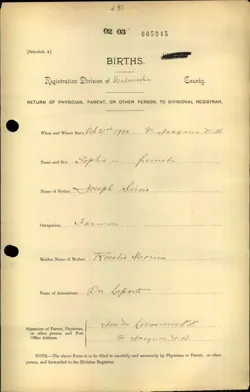 02 03 005945
[Schedule A]
BIRTHS.
Registration Division of Madawaska County.
RETURN OF PHYSICIAN, PARENT, OR OTHER PERSON, TO DIVISIONAL REGISTRAR.
When and Where Born, St Jacques N.B
Name and Sex, Sophie female
Name of Father, Joseph
Occupation, Farmer
Maiden Name of Mother, Rosalie
Name of Accoucheur, Dr. Laporte
Signature of Parent, Physician,
or other person, and Post
Office Address.
St Jacques N.B
NOTE.—The above Form is to be filled in carefully and accurately by Physician, Parent or other person, and
forwarded to the Division Registrar.